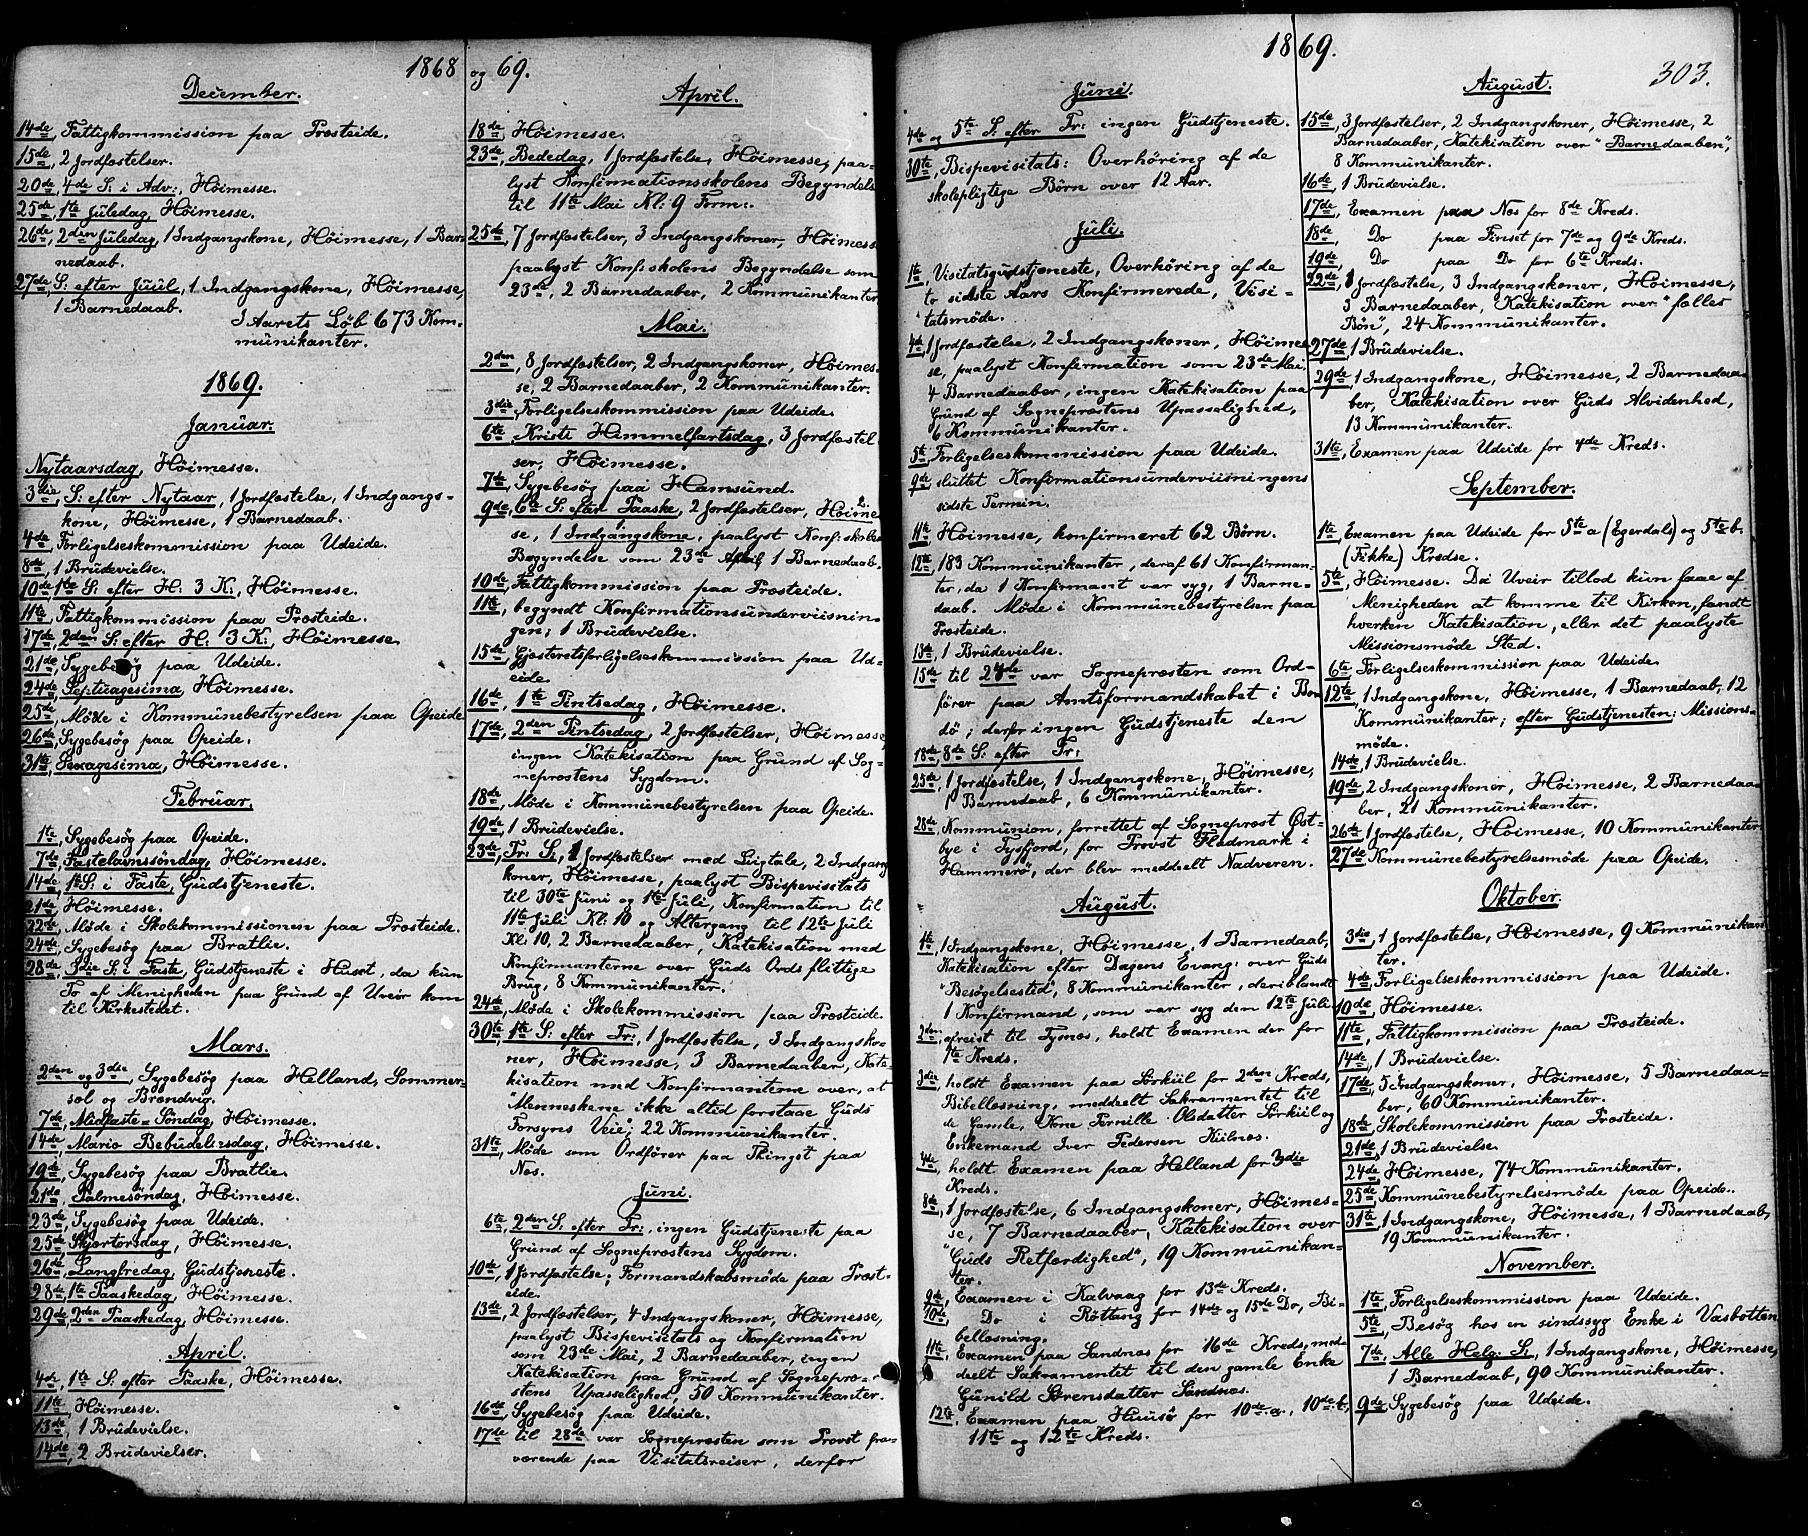 1868
December.
14de, Fattigkommission paa Presteide.
15de, 2 Jordfæstelser.
20de, 4de S. i Adv:, Høimesse.
25de, 1te Juledag, Høimesse.
26de, 2den Juledag, 1 Indgangskone, Høimesse, 1 Bar-
nedaab.
27de, S: efter Juul, 1 Indgangskone, Høimesse,
1 Barnedaab.
I Aarets Løb 673 Kom-
munikanter.
1869.
Januar.
Nytaarsdag, Høimesse.
3die, S: efter Nytaar, 1 Jordfæstelse, 1 Indgangs-
kone, Høimesse, 1 Barnedaab.
4de, Forligelseskommission paa Udeide.
8de, 1 Brudevielse.
10de, 1te S: efter H: 3 K:, Høimesse.
11te, Fattigkommission paa Presteide.
17de, 2den S: efter H: 3 K:, Høimesse.
21de, Sygebesøg paa Udeide.
24de, Septuagesima, Høimesse.
25de, Møde i Kommunebestyrelsen paa Opeide.
26de, Sygebesøg paa Opeide.
31te, Sexagesima, Høimesse.
Februar.
1te, Sygebesøg paa Opeide.
7de, Fastelavnssøndag, Høimesse.
14de, 1te S: i Faste, Gudstjeneste.
21de, Høimesse.
22de, Møde i Skolekommissionen paa Presteide.
24de, Sygebesøg paa Bratlie.
28de, 3die S: i Faste, Gudstjeneste i Huset, da kun
To af Menigheden paa Grund af Uveir kom
til Kirkestedet.
Mars.
2den og 3die, Sygebesøg paa Helland, Sommer-
sel og Brændvig.
7de, Midfaste-Søndag, Høimesse.
14de, Mariæ Bebudelsesdag, Høimesse.
19de, Sygebesøg paa Bratlie.
21de, Palmesøndag, Høimesse.
23de, Sygebesøg paa Udeide.
25de, Skjærtorsdag, Høimesse.
26de, Langfredag, Gudstjeneste.
28de, 1te Paaskedag, Høimesse.
29de, 2den Paaskedag, Høimesse.
April.
4de, 1te S: efter Paaske, Høimesse.
11te, Høimesse.
13de, 1 Brudevielse.
14de, 2 Brudevielser.
og 69.
April.
18de, Høimesse.
23de, Bededag, 1 Jordfæstelse, Høimesse, paa-
lyst Konfirmationsskolens Begyndelse
til 11te Mai Kl: 9 Form:.
25de, 7 Jordfæstelser, 3 Indgangskoner, Høimesse,
paalyst Konf:skolens Begyndelse som
23de, 2 Barnedaaber, 2 Kommunikanter.
Mai.
2den, 8 Jordfæstelser, 2 Indgangskoner, Høimes-
se, 2 Barnedaaber, 2 Kommunikanter.
3die, Forligelseskommission paa Udeide.
6te, Kristi Himmelfartsdag, 3 Jordfæstel-
ser, Høimesse.
7de, Sygebesøg paa Hamsund.
9de, 6te S: efter Paaske, 2 Jordfæstelser, Høimes-
se, 1 Indgangskone, paalyst Konf:skolens
Begyndelse som 23de April, 1 Barnedaab.
10de, Fattigkommission paa Presteide.
11te, begyndt Konfirmationsunderviisnin-
gen; 1 Brudevielse.
15de, Gjæsteretsforligelseskommission paa Ud-
eide.
16de, 1te Pintsedag, Høimesse.
17de, 2den Pintsedag, 2 Jordfæstelser, Høimesse,
ingen Katekisation paa Grund af Sog-
neprestens Sygdom.
18de, Møde i Kommunebestyrelsen paa Opeide.
19de, 1 Brudevielse.
23de, Tr: S:, 1 Jordfæstelser med Liigtale, 2 Indgangs-
koner, Høimesse, paalyst Bispevisitats
til 30te Juni og 1te Juli, Konfirmation til
11te Juli Kl: 10 og Altergang til 12te Juli
Kl: 10, 2 Barnedaaber, Katekisation med
Konfirmanterne over Guds Ords flittige
Brug, 8 Kommunikanter.
24de, Møde i Skolekommission paa Presteide.
30te, 1te S: efter Tr:, 1 Jordfæstelse, 3 Indgangsko-
ner, Høimesse, 3 Barnedaaber, Kate-
kisation med Konfirmanterne over, at
"Menneskene ikke altid forstaae Guds
Forsyns Veie; 22 Kommunikanter.
31te, Møde som Ordfører paa Thinget paa
Nes.
Juni.
6te, 2den S: efter Tr:, ingen Gudstjeneste paa
Grund af Sogneprestens Sygdom.
10de, 1 Jordfæstelse; Formandskabsmøde paa Prest-
eide.
13de, 2 Jordfæstelser, 4 Indgangskoner, Høimesse,
paalyst Bispevisitats og Konfirmation
som 23de Mai, 2 Barnedaaber, ingen
Katekisation paa Grund af Sognepre-
stens Upasselighed, 50 Kommunikanter.
16de, Sygebesøg paa Udeide.
17de, til 28de var Sognepresten som Provst fra-
værende paa Visitatsreiser, derfor
1869.
Juni.
4de og 5te S: efter Tr: ingen Gudstjeneste.
30te, Bispevisitats: Overhøring af de
skolepligtige Børn over 12 Aar.
Juli.
1te, Visitatsgudstjeneste, Overhøring af de
to sidste Aars Konfirmerede, Visi-
tatsmøde.
4de, 1 Jordfæstelse, 2 Indgangskoner, Høimes-
se, paalyst Konfirmation som 23de Mai,
4 Barnedaaber, ingen Katekisation paa
Grund af Sogneprestens Upasselighed,
6 Kommunikanter.
5te, Forligelseskommission paa Udeide.
9de, sluttet Konfirmationsunderviisningens
sidste Termin.
11te, Høimesse, konfirmeret 62 Børn.
12te, 183 Kommunikanter, deraf 61 Konfirman-
ter, da 1 Konfirmant var syg, 1 Barne-
daab. Møde i Kommunebestyrelsen paa
Presteide.
13de, 1 Brudevielse.
15de til 24de var Sognepresten som Ord-
fører paa Amtsformandskabet i Bo-
dø; derfor ingen Gudstjeneste den
18de, 8de S: efter Tr:
25de, 1 Jordfæstelse, 1 Indgangskone, Høimesse,
1 Barnedaab, 6 Kommunikanter.
28de, Kommunion, forrettet af Sogneprest Øst-
bye i Tysfjord, for Provst Fladmark i
Hammerø, der blev meddeelt Nadveren.
August.
1te, 1 Indgangskone, Høimesse, 1 Barnedaab,
Katekisation efter Dagens Evang: over Guds
"Besøgelsestid", 8 Kommunikanter, deriblandt
1 Konfirmand, som var syg den 12te Juli.
2den, afreist til Tysnes, holdt Examen der for
1te Kreds.
3die, holdt Examen paa Sørkiil for 2den Kreds,
Bibellæsning, meddeelt Sakramentet til
de Gamle, Kone Pernille Olsdatter Sørkiil og
Enkemand Iver Pedersen Kiilnes.
4de, holdt Examen paa Helland for 3die
Kreds.
8de, 1 Jordfæstelse, 6 Indgangskoner, Høimes-
se, 7 Barnedaaber, Katekisation over
"Guds Retfærdighed", 19 Kommunikan-
ter.
9de, Examen i Kalvaag for 13de Kreds.
10de, Do i Røttang for 14de og 15de Do, Bi-
bellæsning.
11te, Examen paa Sandnes for 16de Kreds, med-
deelt Sakramentet til den gamle Enke
Gunild Sørensdatter Sandnes.
12te, Examen paa Huusø for 10de a, 10de b,
11te og 12te Kreds.
303.
August.
15de, 3 Jordfæstelser, 2 Indgangskoner, Høimesse, 2
Barnedaaber, Katekisation over "Barnedaaben",
8 Kommunikanter.
16de, 1 Brudevielse.
17de, Examen paa Nes for 8de Kreds.
18de, Do paa Finset for 7de og 9de Kreds.
19de, Do paa Do for 6te Kreds.
22de, 1 Jordfæstelse, 3 Indgangskoner, Høimesse,
3 Barnedaaber, Katekisation over "fælles
Bøn", 24 Kommunikanter.
27de, 1 Brudevielse.
29de, 1 Indgangskone, Høimesse, 2 Barnedaa-
ber, Katekisation over Guds Alvidenhed,
13 Kommunikanter.
31te, Examen paa Udeide for 4de Kreds.
September.
1te, Examen paa Udeide for 5te a (Egerdals) og 5te b.
(Fikke) Kredse.
5te, Høimesse. Da Uveir tillod kun faae af
Menigheden at komme til Kirken, fandt
hverken Katekisation, eller det paalyste
Missionsmøde Sted.
6te, Forligelseskommission paa Udeide.
12te, 1 Indgangskone, Høimesse, 1 Barnedaab, 12
Kommunikanter; efter Gudstjenesten: Missions-
møde.
14de, 1 Brudevielse.
19de, 2 Indgangskoner, Høimesse, 2 Barnedaa-
ber, 21 Kommunikanter.
26de, 1 Jordfæstelse, Høimesse, 10 Kommunikanter.
27de, Kommunebestyrelsesmøde paa Opeide.
Oktober.
3die, 1 Jordfæstelse, Høimesse, 9 Kommunikan-
ter.
4de, Forligelseskommission paa Udeide.
10de, Høimesse.
11te, Fattigkommission paa Presteide.
14de, 1 Brudevielse.
17de, 5 Indgangskoner, Høimesse, 5 Barnedaa-
ber, 60 Kommunikanter.
18de, Skolekommission paa Presteide.
21de, 1 Brudevielse.
24de, Høimesse, 74 Kommunikanter.
25de, Kommunebestyrelsesmøde paa Opeide.
31te, 1 Indgangskone, Høimesse, 1 Barnedaab,
19 Kommunikanter.
November.
1te, Forligelseskommission paa Udeide.
5te, Besøg hos en sindssyg Enke i Vasbotten.
7de, Alle Helg: S:, 1 Indgangskone, Høimesse,
1 Barnedaab, 90 Kommunikanter.
9de, Sygebesøg paa Udeide.